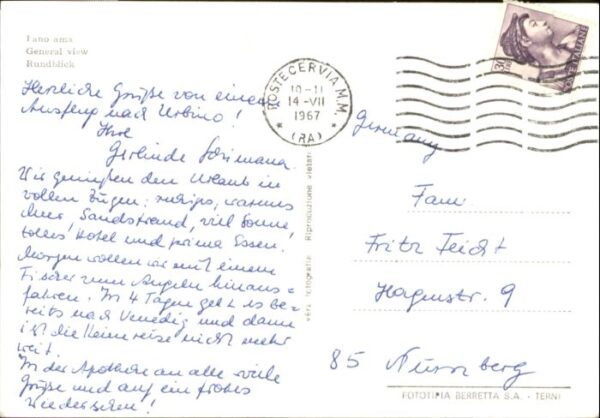 Panorama
General view
Rundblick
Herzliche Grüße von einem
Ausflug nach Urbino!
Ihre
Gerlinde
Wir genießen den Urlaub in
vollen Zügen: ruhiges, warmes
Meer, Sandstrand, viel Sonne,
tolles Hotel und prima Essen.
Morgen wollen wir mit einem
Fischer zum Angeln hinaus-
fahren. In 4 Tagen geht es be-
reits nach Venedig und dann
ist die Heimreise nicht mehr
weit.
In der Apotheke an alle viele
Grüße und auf ein frohes
Wiedersehen!
POSTE CERVIA M.M.
10-11
14-VII
1967
(RA)
30
ITALIANE
vera fotografia Riproduzione vietata
Germany
Fam.
Fritz Feicht
Hagenstr. 9
85 Nürnberg
FOTOTIPIA BERRETTA S.A. - TERNI